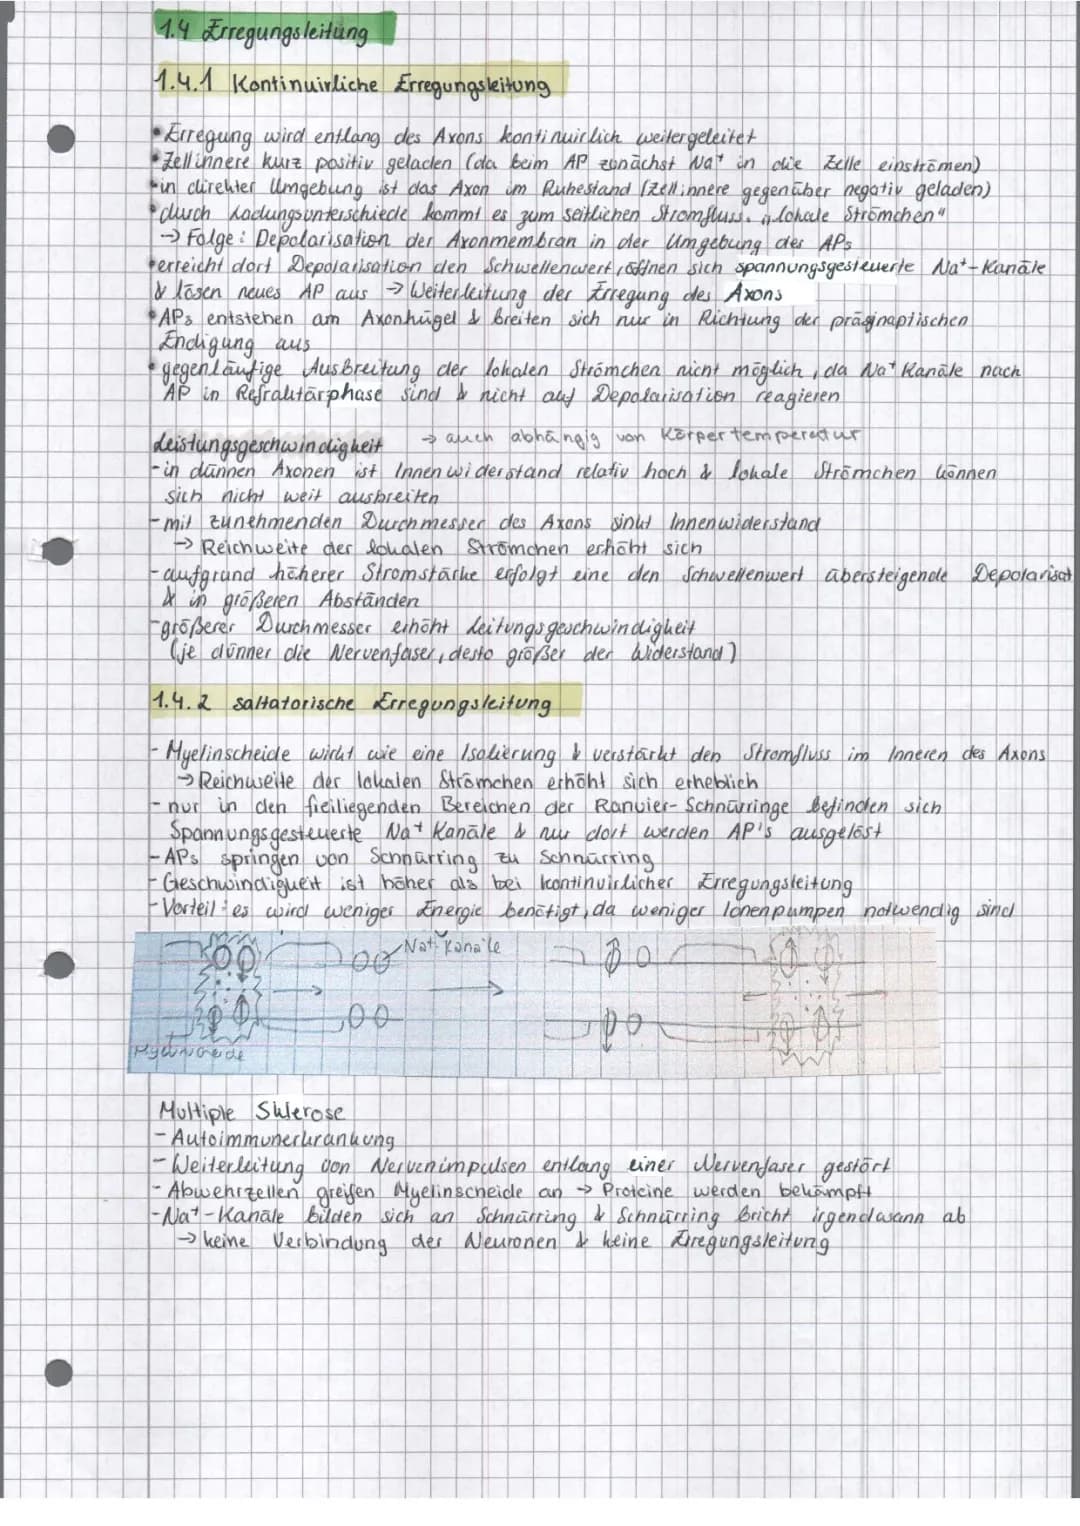 1.4 Erregungsleitung
1.4.1 Kontinuirliche Erregungsleitung
• Erregung wird entlang des Axons kontinuirlich weitergeleitet
• Zellinnere kurz positiv geladen (da beim AP zunächst Na⁺ in die Zelle einströmen)
• in direkter Umgebung ist das Axon im Ruhestand (Zellinnere gegenüber negativ geladen)
• durch Ladungsunterschiede kommt es zum seitlichen Stromfluss. „lokale Strömchen"
→ Folge: Depolarisation der Axonmembran in der Umgebung des APs
• erreicht dort Depolarisation den Schwellenwert, öffnen sich spannungsgesteuerte Na⁺-Kanäle
& lösen neues AP aus → Weiterleitung der Erregung des Axons
• APs entstehen am Axonhügel & breiten sich nur in Richtung der präsynaptischen
Endigung aus
• gegenläufige Ausbreitung der lokalen Strömchen nicht möglich, da Na⁺ Kanäle nach
AP in Refraktärphase sind & nicht auf Depolarisation reagieren
Leistungsgeschwindigkeit → auch abhängig von Körpertemperatur
- in dünnen Axonen ist Innenwiderstand relativ hoch & lokale Strömchen können
sich nicht weit ausbreiten
- mit zunehmenden Durchmesser des Axons sinkt Innenwiderstand
→ Reichweite der lokalen Strömchen erhöht sich
- aufgrund höherer Stromstärke erfolgt eine den Schwellenwert übersteigende Depolarisat
& in größeren Abständen
- größerer Durchmesser erhöht Leitungsgeschwindigkeit
(je dünner die Nervenfaser, desto größer der Widerstand)
1.4.2 saltatorische Erregungsleitung
- Myelinscheide wirkt wie eine Isolierung & verstärkt den Stromfluss im Inneren des Axons
→ Reichweite der lokalen Strömchen erhöht sich erheblich
- nur in den freiliegenden Bereichen der Ranvier-Schnürringe befinden sich
Spannungsgesteuerte Na⁺ Kanäle & nur dort werden AP's ausgelöst
- APs springen von Schnürring zu Schnürring
- Geschwindigkeit ist höher als bei kontinuirlicher Erregungsleitung
- Vorteil: es wird weniger Energie benötigt, da weniger Ionenpumpen notwendig sind
Na⁺-Kanäle
Myelinscheide
Multiple Sklerose
- Autoimmunerkrankung
- Weiterleitung von Nervenimpulsen entlang einer Nervenfaser gestört
- Abwehrzellen greifen Myelinscheide an → Proteine werden bekämpft
- Na⁺-Kanäle bilden sich an Schnürring & Schnürring bricht irgendwann ab
→ keine Verbindung der Neuronen & keine Erregungsleitung